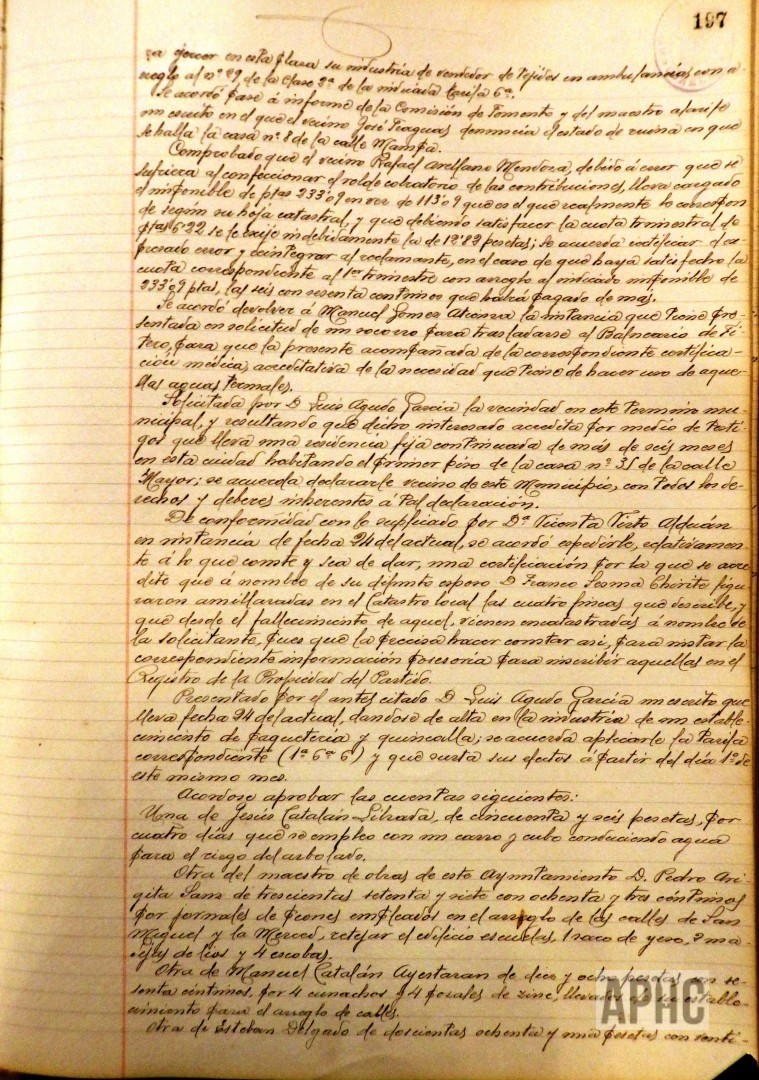 197
ra ejercer en esta plaza su industria de vendedor de tejidos en ambulancias con a-
rreglo al nº 29 de la clase 2ª de la indicada tarifa 6ª.
Se acordó pase á informe de la Comisión de Fomento y del maestro alarife
un escrito en el que el vecino José Fraguas denuncia el estado de ruina en que
se halla la casa nº 8 de la calle Mampa.
Comprobado que el vecino Rafael Arellano Mendoza, debido á error que se
sufriera al confeccionar el rolde cobratorio de las contribuciones, lleva cargado
el imponible de ptas 233'09 en vez de 113'09 que es el que realmente le correspon
de según su hoja catastral, y que debiendo satisfacer la cuota trimestral de
ptas 6'22 se le exije indebidamente la de 12'82 pesetas; se acuerda rectificar el ex-
presado error y reintegrar al reclamante, en el caso de que haya satisfecho la
cuota correspondiente al 1er trimestre con arreglo al indicado imponible de
233'09 ptas, las seis con sesenta centimos que habrá pagado de mas.
Se acordó devolver á Manuel Gomez Atienza la instancia que tiene pre-
sentada en solicitud de un socorro para trasladarse al Balneario de Fi-
tero, para que la presente acompañada de la correspondiente certifica-
ción médica, acreditativa de la necesidad que tiene de hacer uso de aque-
llas aguas termales.
Solicitada por D. Luis Agudo García la vecindad en este termino mu-
nicipal, y resultando que dicho interesado acredita por medio de testi-
gos que lleva una residencia fija continuada de más de seis meses
en esta ciudad habitando el primer piso de la casa nº 31 de la calle
Mayor; se acuerda declararle vecino de este Municipio, con todos los de-
rechos y deberes inherentes á tal declaración.
De conformidad con lo suplicado por Dª Vicenta Virto Alduán
en instancia de fecha 24 del actual, se acordó expedirle, relativamen-
te á lo que conste y sea de dar, una certificación por la que se acre
dite que á nombre de su difunto esposo D. Franco Sesma Chivite figu
raron amillaradas en el Catastro local las cuatro fincas que describe, y
que desde el fallecimiento de aquel, vienen encatastradas á nombre de
la solicitante, pues que la precisa hacer constar asi, para instar la
correspondiente información posesoria para inscribir aquellas en el
Registro de la Propiedad del Partido.
Presentado por el antes citado D. Luis Agudo García un escrito que
lleva fecha 24 del actual, dandose de alta en la industria de un estable-
cimiento de paqueteria y quincalla; se acuerda aplicarle la tarifa
correspondiente (1ª 6ª 6) y que surta sus efectos á partir del día 1º de
este mismo mes.
Acordose aprobar las cuentas siguientes:
Una de Jesús Catalán Librada, de cincuenta y seis pesetas, por
cuatro dias que se empleo con un carro y cubo conduciendo agua
para el riego del arbolado.
Otra del maestro de obras de este Ayuntamiento D. Pedro Ari-
gita Sanz de trescientas setenta y siete con ochenta y tres céntimos
por jornales de peones empleados en el arreglo de las calles de San
Miguel y la Merced, retejar el edificio escuelas, 1 saco de yeso, 2 ma-
nojos de lios y 4 escobas.
Otra de Manuel Catalán Ayestaran de diez y ocho pesetas con se-
senta céntimos, por 4 cunachos y 4 pozales de zinc, llevados de su estable-
cimiento para el arreglo de calles.
Otra de Esteban Delgado de doscientas ochenta y una pesetas con venti-
APHC